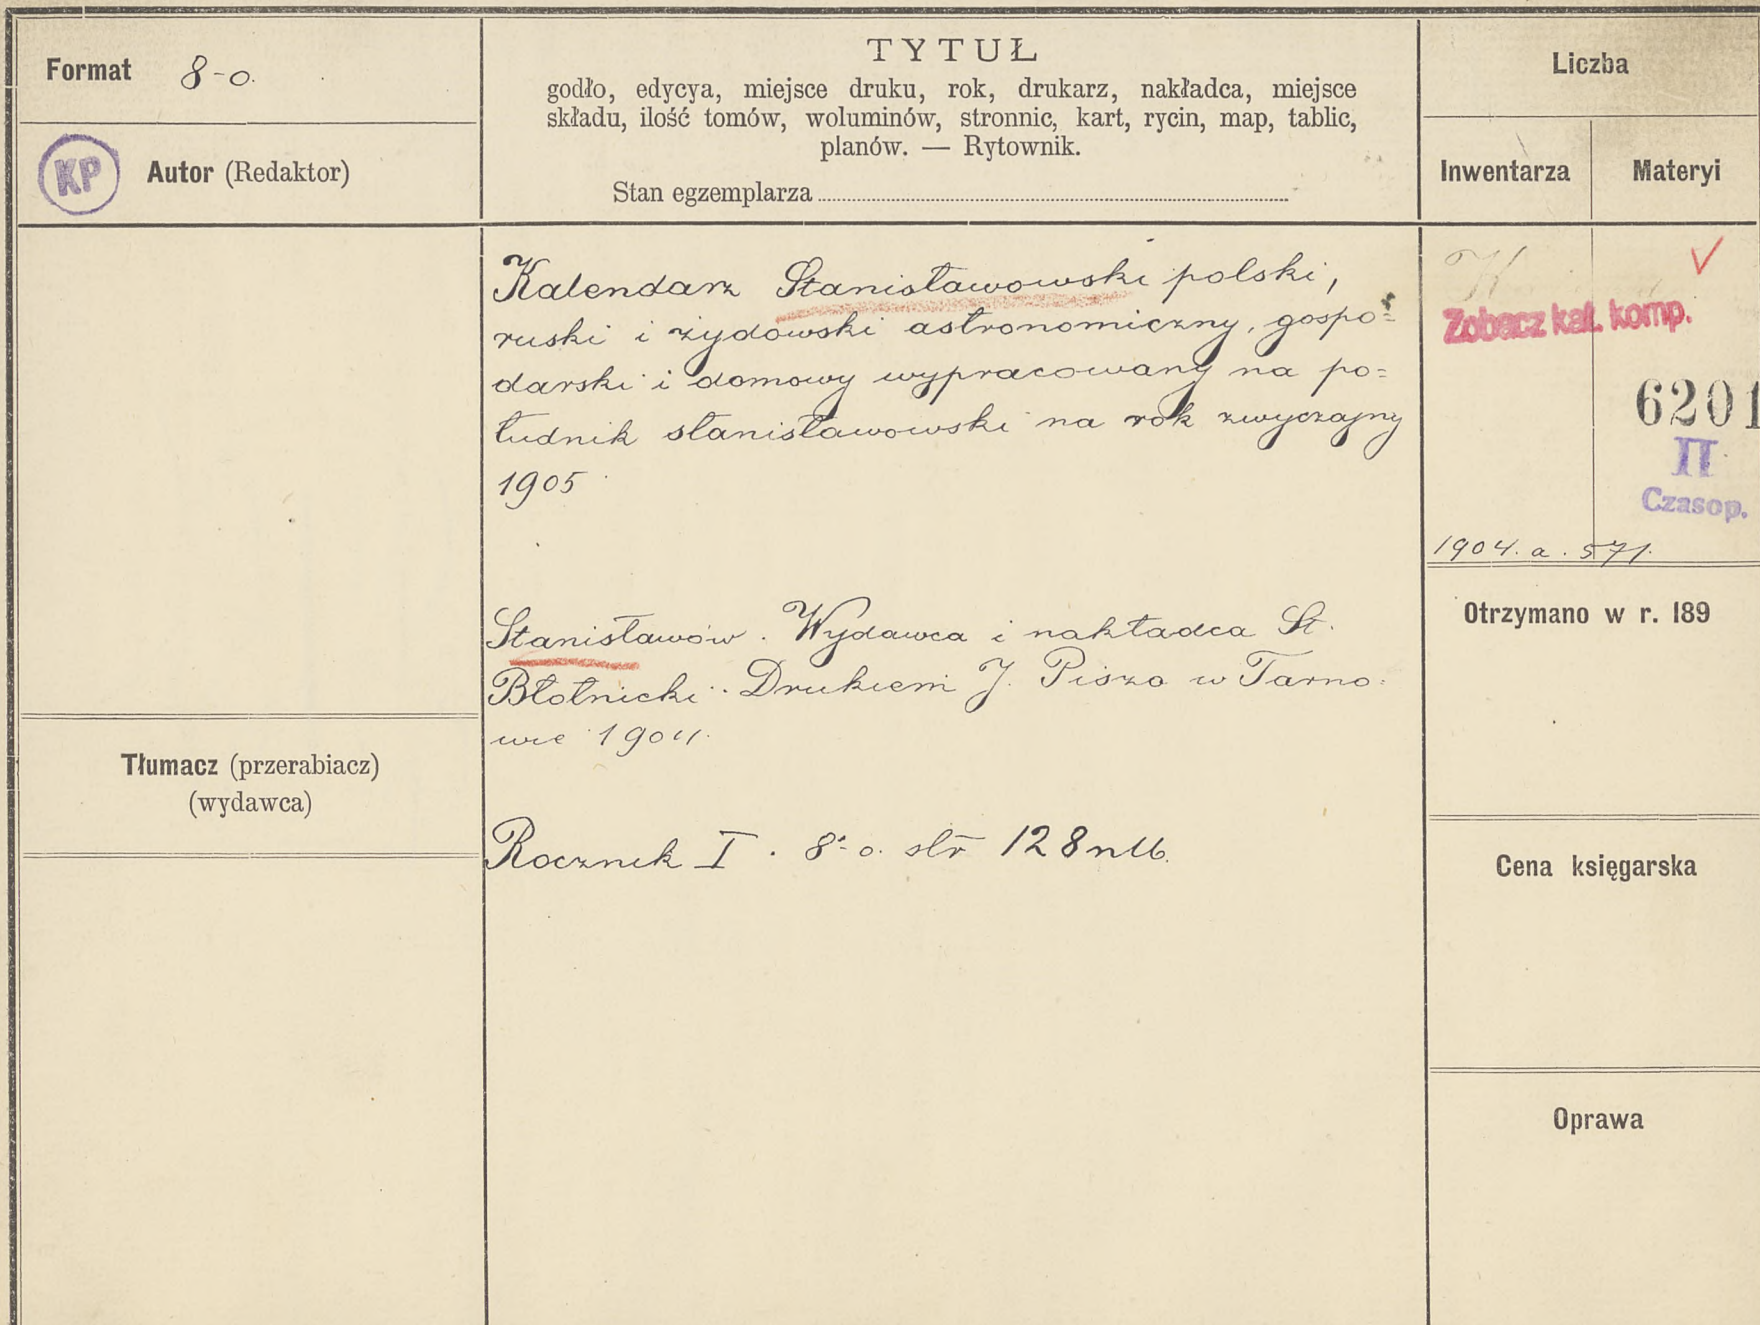 Format 8-o.
KP
Autor (Redaktor)
TYTUŁ
godło, edycya, miejsce druku, rok, drukarz, nakładca, miejsce
składu, ilość tomów, woluminów, stronnic, kart, rycin, map, tablic,
planów. — Rytownik.
Stan egzemplarza
Liczba
Inwentarza
Materyi
Kalendarz Stanisławowski polski,
ruski i żydowski astronomiczny, gospo-
darski i domowy wypracowany na po=
łudnik stanisławowski na rok zwyczajny
1905
Stanisławów. Wydawca i nakładca St.
Błotnicki. Drukiem J. Pisza w Tarno-
wie 1904.
Rocznik I. 8-o. str 128 nlb.
Zobacz kat. komp.
6201
II
Czasop.
1904. a. 571.
Otrzymano w r. 189
Cena księgarska
Oprawa
Tłumacz (przerabiacz)
(wydawca)